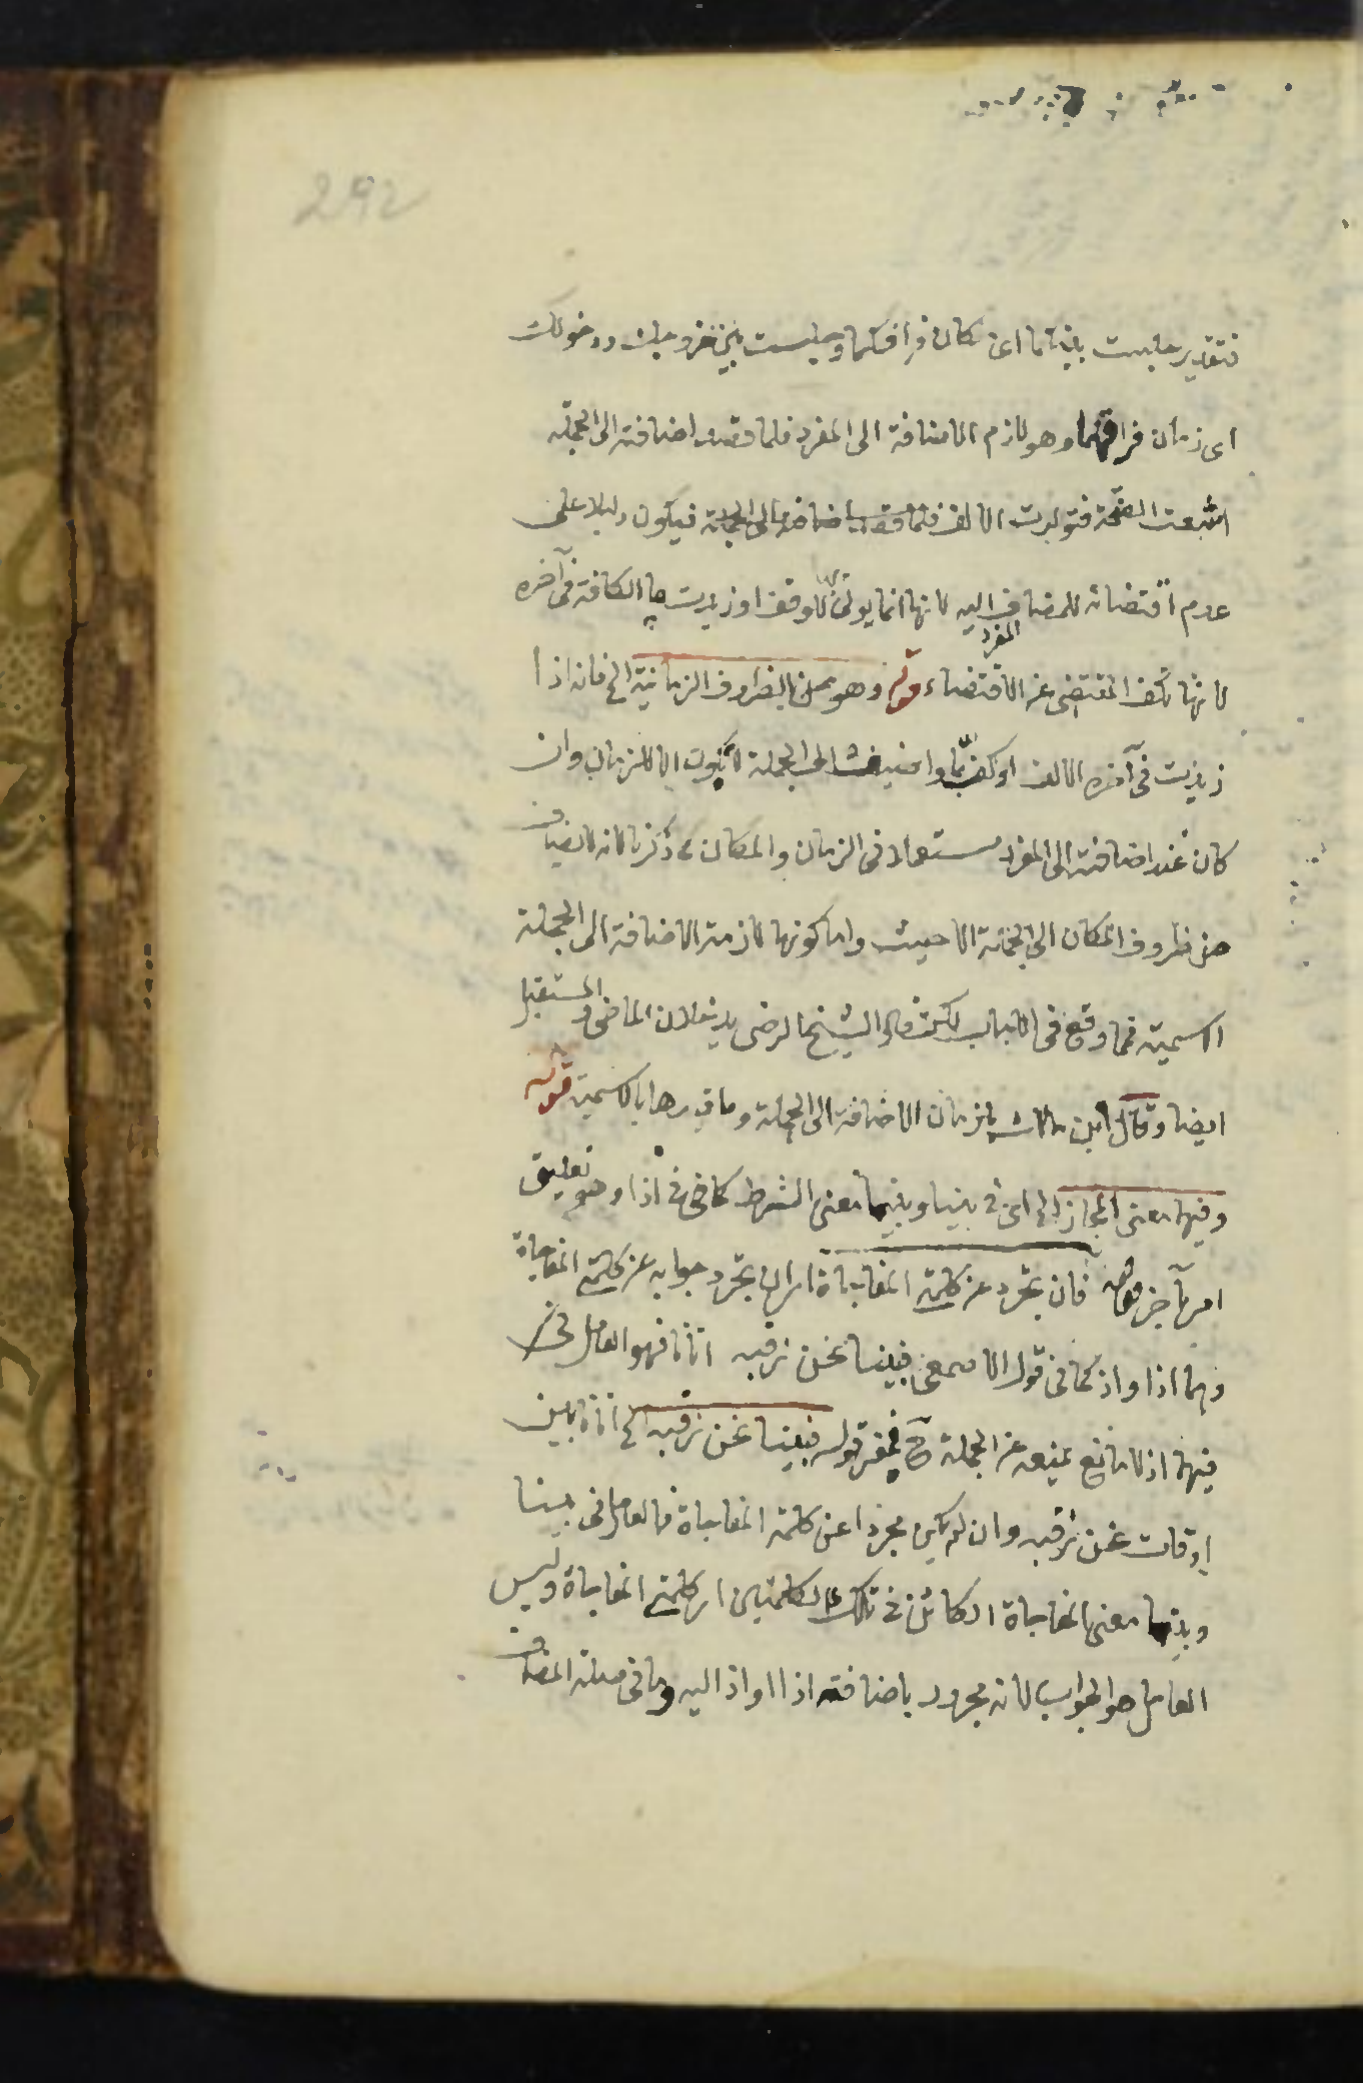 292
فتقدير جلست بينكما اى مكان فراقكما وجلست بين خروجك ودخولك
اى زمان فراقهما وهو لازم الاضافة الى المفرد فلما قصد اضافته الى الجملة
اشبعت الفتحة فتولدت الالف فلما قصد اضافته الى الجملة فيكون دليلا على
عدم اقتضائه للمضاف اليه لانها انما يولى للوقف او زيدت ما الكافة فى آخره
لانها تكف المقتضى عن الاقتضاء المفرد قوله وهو من الظروف الزمانية الخ فانه اذا
زيدت فى آخره الالف او كف بما واضيف الى الجملة لا يكون الا للزمان وان
كان عند اضافته الى المفرد مستعملا فى الزمان والمكان ذكرنا لانه لا يضاف
من ظروف المكان الى الجملة الا حيث واما كونها لازمة الاضافة الى الجملة
الاسمية فما وقع فى اللباب لكن قال الشيخ الرضى يدخلان الماضى والمستقبل
ايضا وقال ابن مالك يلزمان الاضافة الى الجملة وما قيدها بالاسمية قوله
وفيها معنى المجازاة اى فى بينا وبينما معنى الشرط كما فى اذا وهو تعليق
امر بآخر فان تجرد عن كلمتى المفاجاة اى ان تجرد جوابه عن كلمتى المفاجاة
وهما اذا واذ كما فى قول الاصمعى فبينا نحن نرقبه اتانا فهو العامل
فيهما اذ لا مانع يمنعه عن الجملة قوله فبينا نحن نرقبه الخ اتانا بين
اوقات نحن نرقبه وان لم يكن مجردا عن كلمتى المفاجاة فالعامل فى بينا
وبينما معنى المفاجاة الكائن فى تلك الكلمتين اى كلمتى المفاجاة وليس
العامل هو الجواب لانه مجرور باضافة اذا او اذ اليه وما فى صلة المضاف